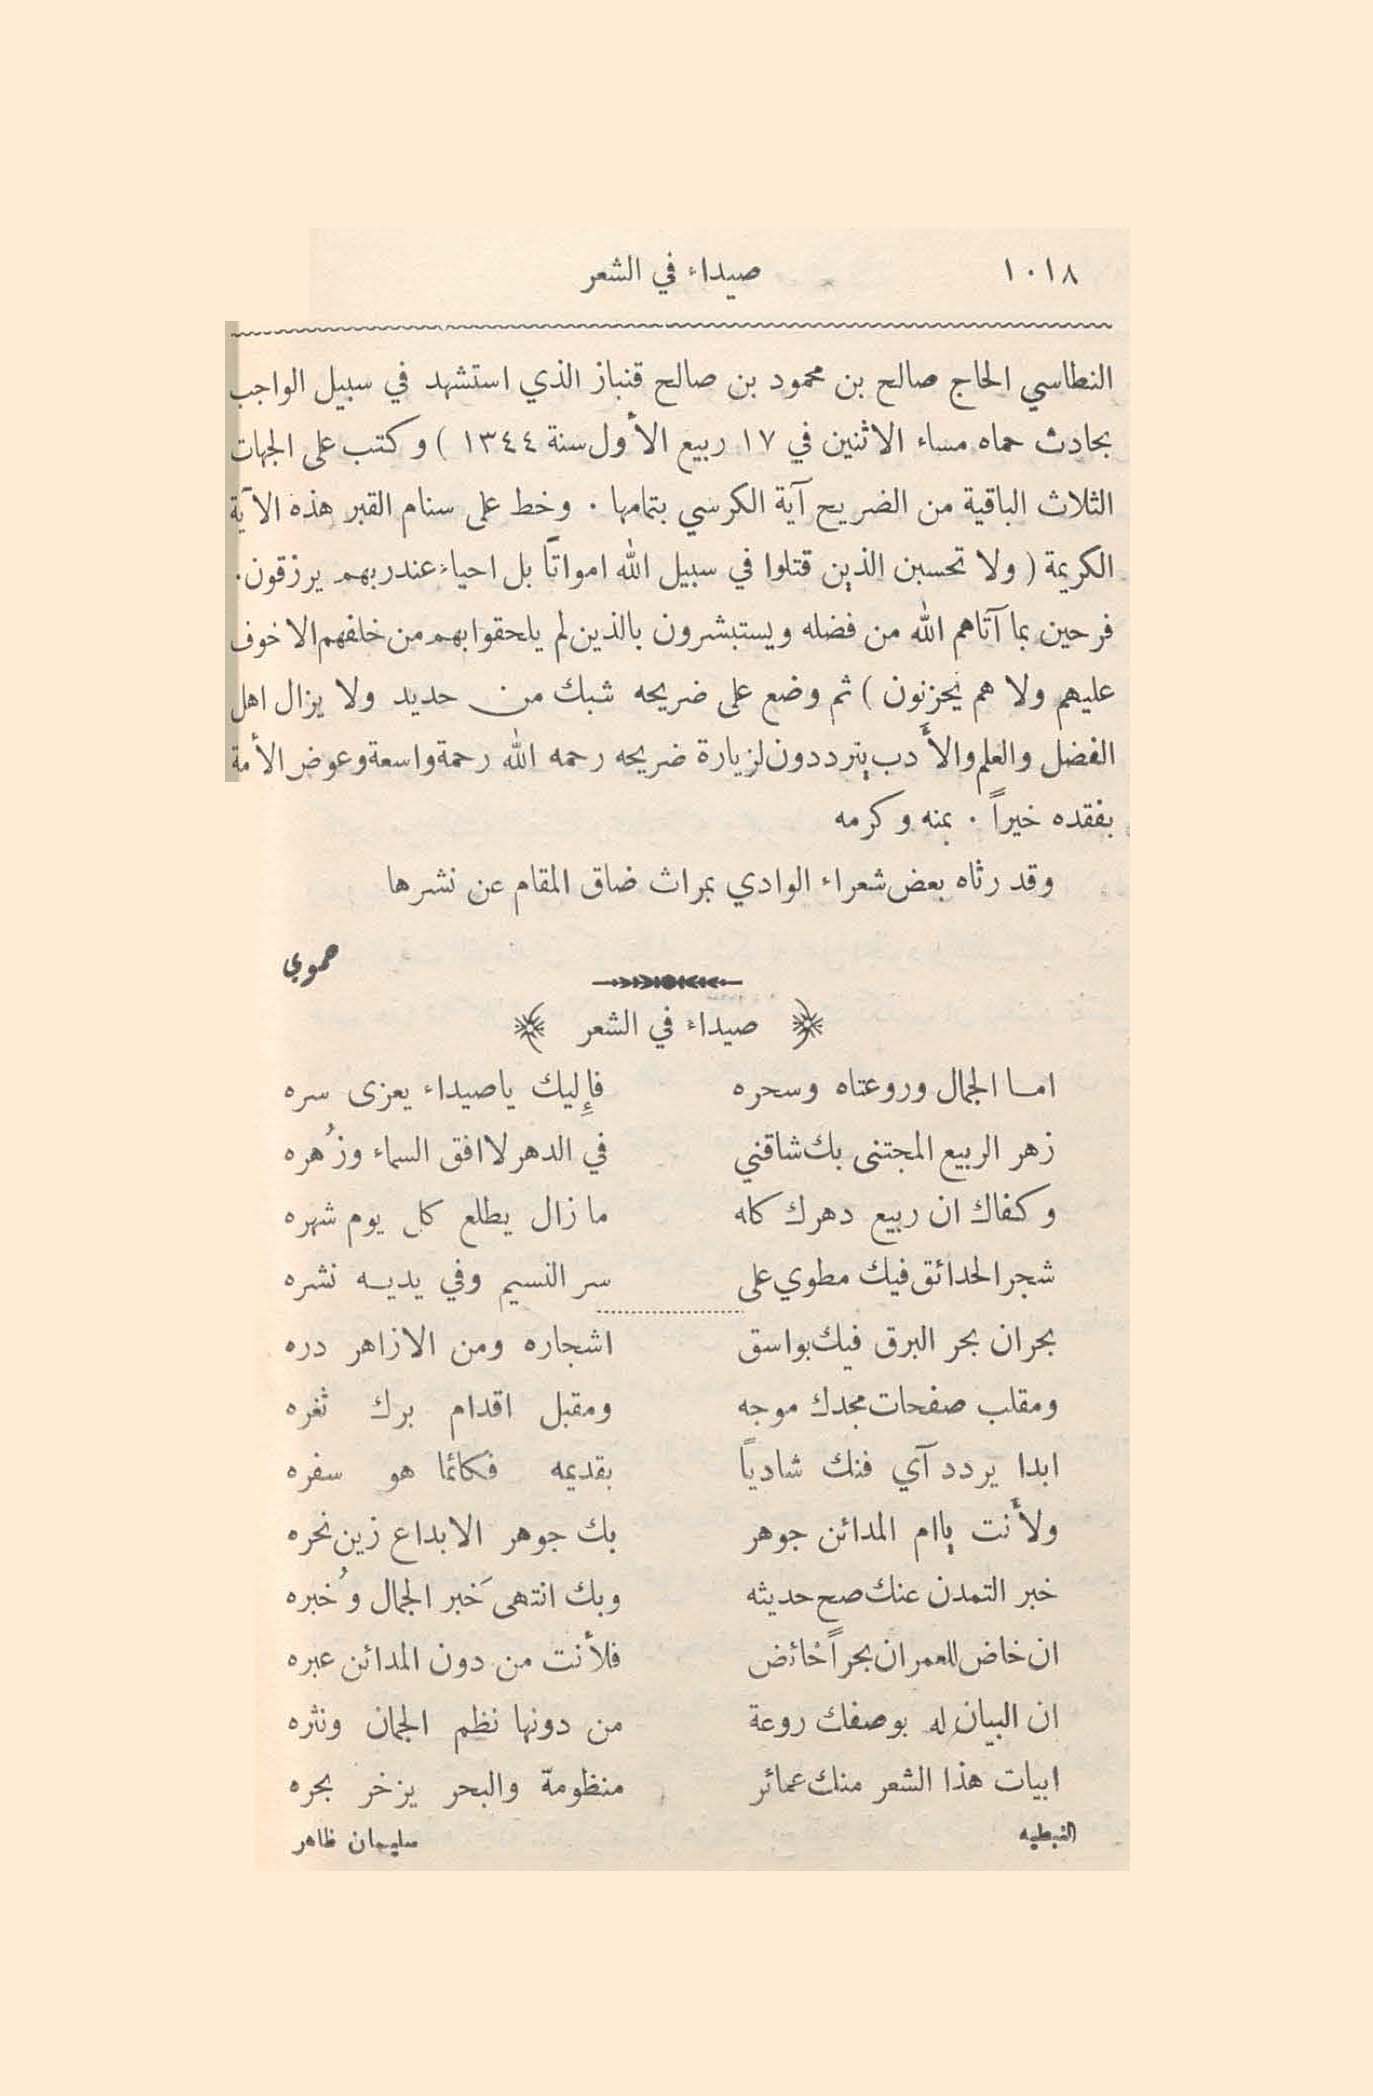 ١٠١٨ صيداء في الشعر
النطاسي الحاج صالح بن محمود بن صالح قنباز الذي استشهد في سبيل الواجب
بحادث حماه مساء الاثنين في ١٧ ربيع الأول سنة ١٣٤٤ ) وكتب على الجهات
الثلاث الباقية من الضريح آية الكرسي بتمامها . وخط على سنام القبر هذه الآية
الكريمة ( ولا تحسبن الذين قتلوا في سبيل الله امواتًا بل احياء عند ربهم يرزقون .
فرحين بما آتاهم الله من فضله ويستبشرون بالذين لم يلحقوا بهم من خلفهم الا خوف
عليهم ولا هم يحزنون ) ثم وضع على ضريحه شبك من حديد ولا يزال اهل
الفضل والعلم والأَدب يترددون لزيارة ضريحه رحمه الله رحمة واسعة وعوض الأمة
بفقده خيراً . بمنه وكرمه
وقد رثاه بعض شعراء الوادي بمراث ضاق المقام عن نشرها
حموي
صيداء في الشعر
امـا الجمال وروعتاه وسحره فإِليك ياصيداء يعزى سره
زهر الربيع المجتنى بك شاقني في الدهر لا افق السماء وزُهره
وكفاك ان ربيع دهرك كله ما زال يطلع كل يوم شهره
شجر الحدائق فيك مطوي على سر النسيم وفي يديـه نشره
بحران بحر البرق فيك بواسق اشجاره ومن الازاهر دره
ومقلب صفحات مجدك موجه ومقبل اقدام برك ثغره
ابدا يردد آي فنك شادياً بقديمه فكائما هو سفره
ولأَنت ياام المدائن جوهر بك جوهر الابداع زين نحره
خبر التمدن عنك صح حديثه وبك انتهى خَبر الجمال وخُبره
ان خاض للعمران بحراً خائض فلأنت من دون المدائن عبره
ان البيان له بوصفك روعة من دونها نظم الجمان ونثره
ابيات هذا الشعر منك عمائر منظومة والبحر يزخر بحره
النبطيه سليمان ظاهر